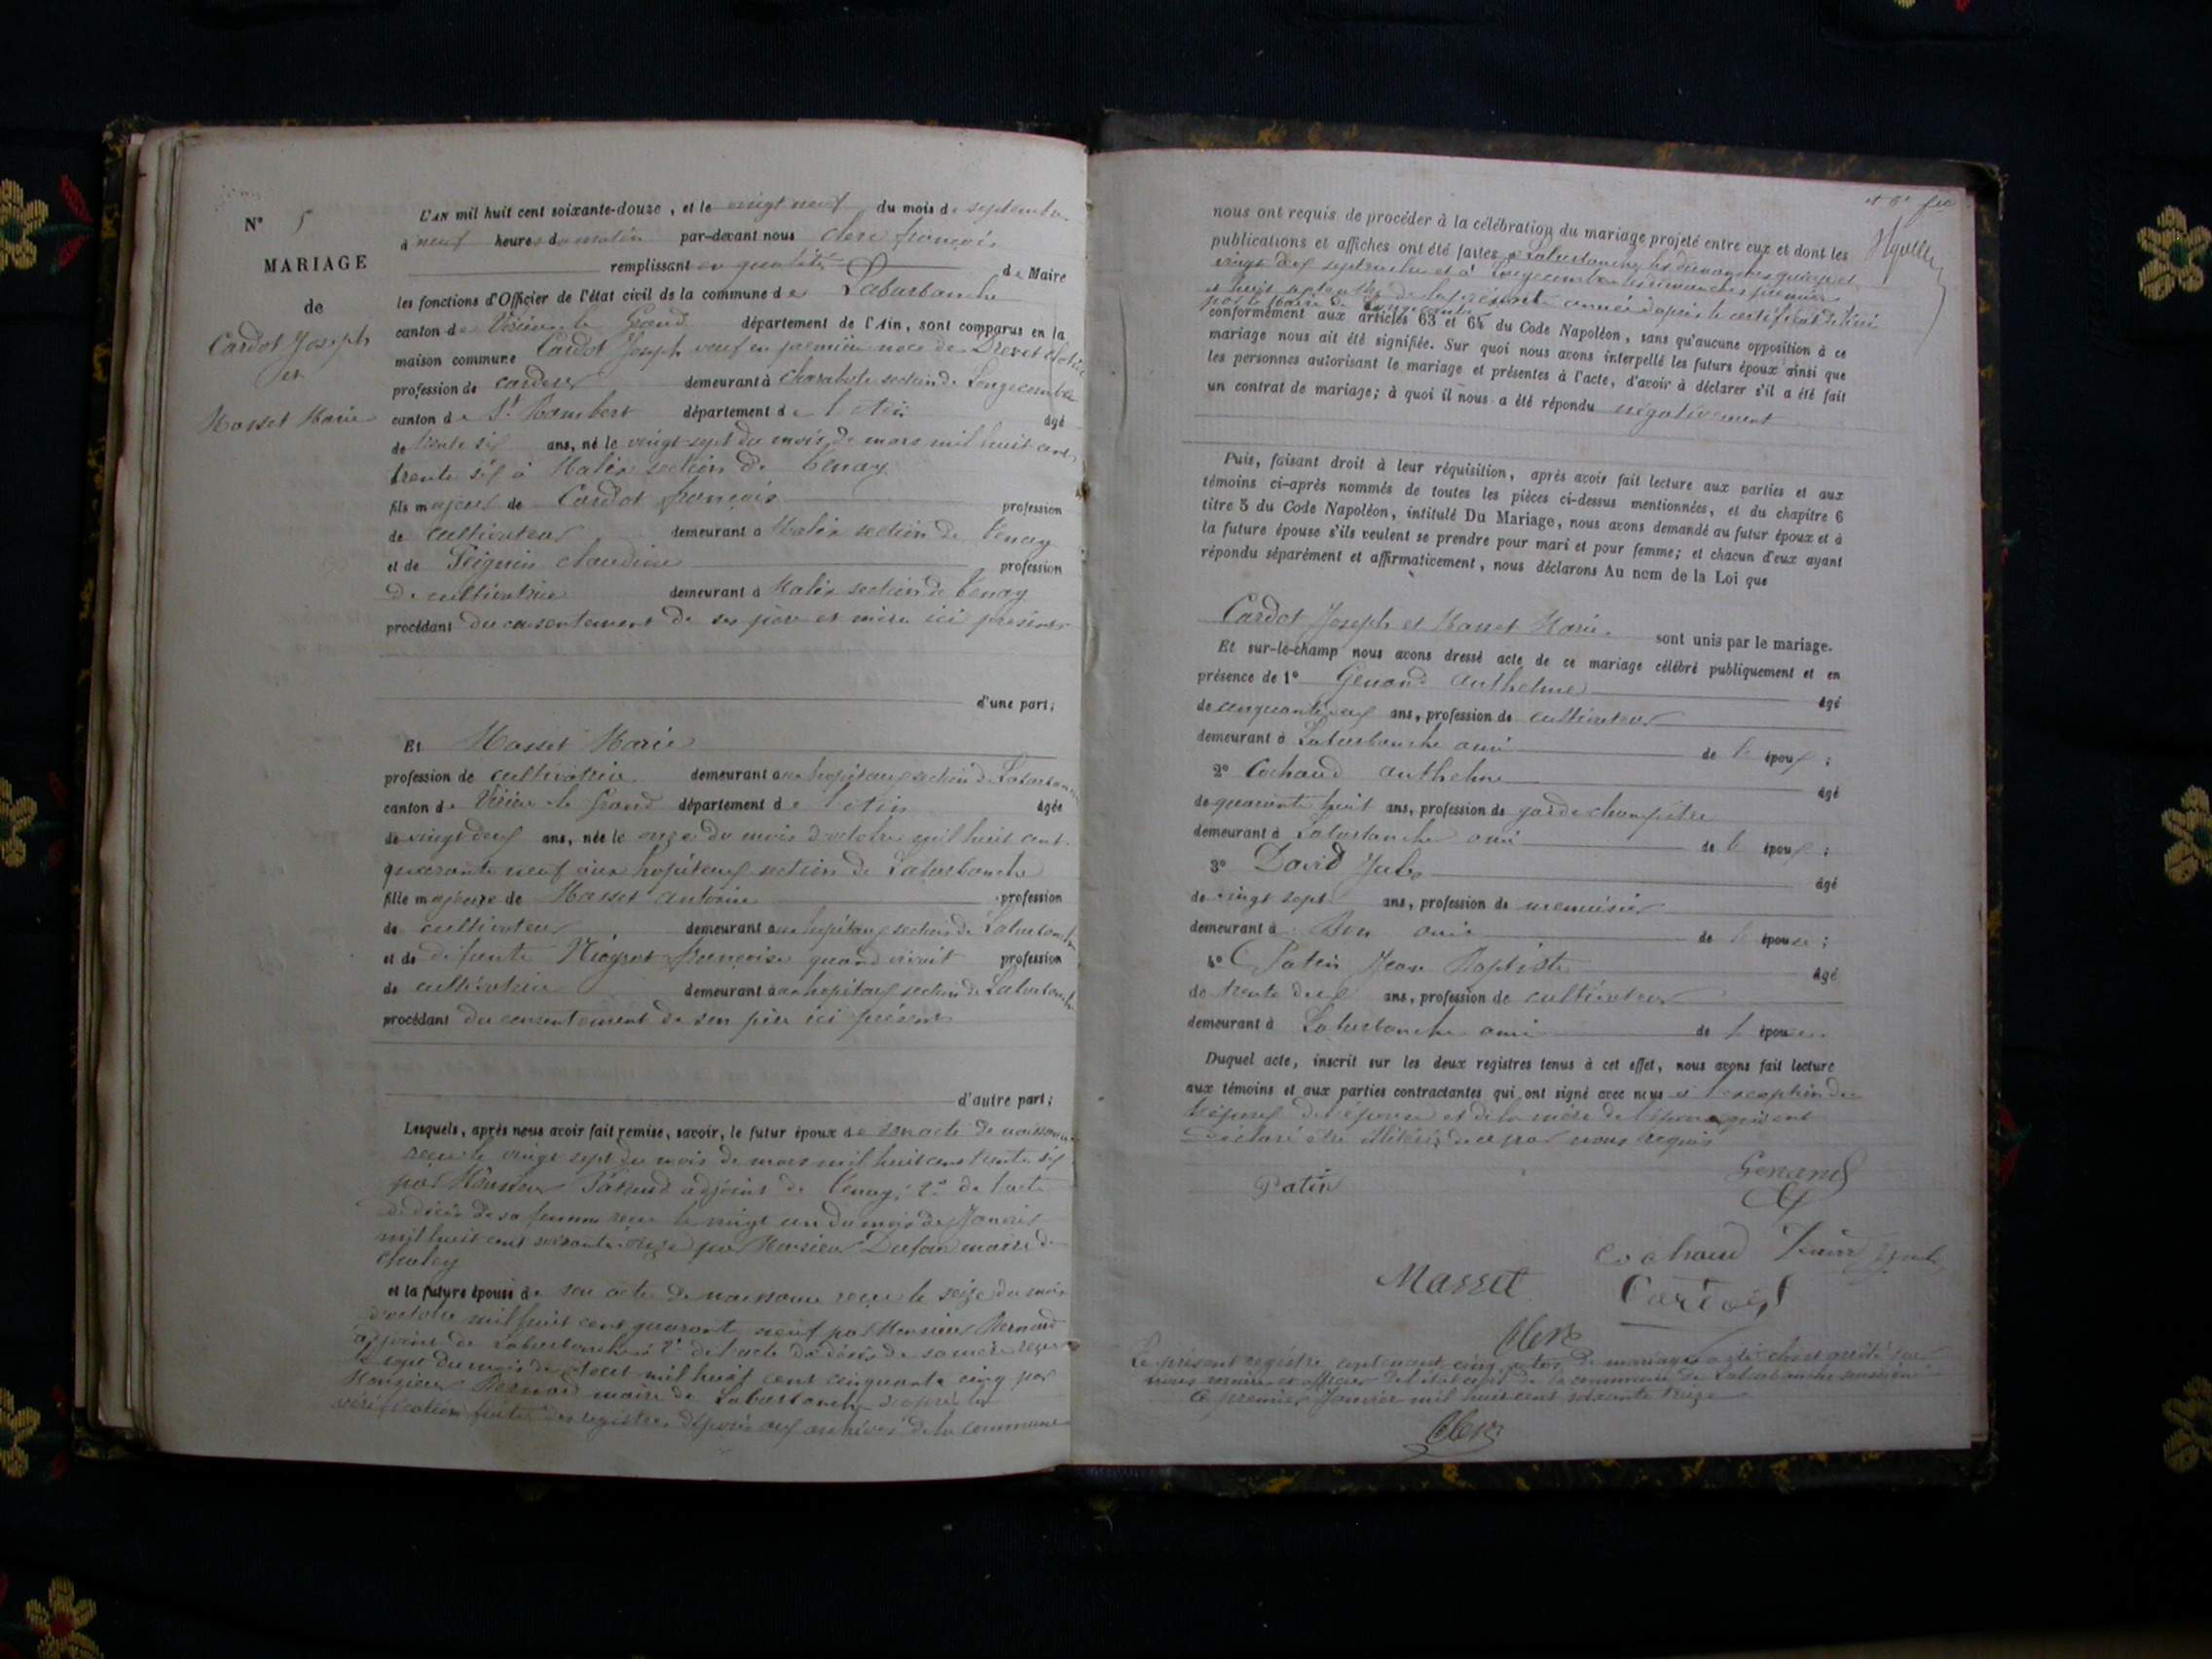 N° 5
MARIAGE
de
Cardot Joseph
et
Masset Marie
L'AN mil huit cent soixante-douze, et le vingt neuf du mois de septembre
à neuf heures du matin par-devant nous Clerc françois
remplissant en qualité de Maire
les fonctions d'Officier de l'état civil de la commune de Laburbanche
canton de Virieu le Grand département de l'Ain, sont comparus en la
maison commune Cardot Joseph veuf en première noce de Drevet
profession de cardeur demeurant à Charabote section de Longecombe
canton de St Rambert département de l'Ain âgé
de trente six ans, né le vingt sept du mois de mars mil huit cent
trente six à Malix section de Tenay
fils majeur de Cardot françois profession
de cultivateur demeurant à Malix section de Tenay
et de Peiguin claudine profession
De cultivatrice demeurant à Malix section de Tenay
procédant du consentement de ses père et mère ici présents
d'une part;
Et Masset Marie
profession de cultivatrice demeurant aux hopitaux section de Laburbanche
canton de Virieu le Grand département de l'Ain âgée
de vingt deux ans, née le onze du mois d'octobre mil huit cent
quarante neuf aux hopitaux section de Laburbanche
fille majeure de Masset antoine profession
de cultivateur demeurant aux hopitaux section de Laburbanche
et de défunte françoise quand vivait profession
de cultivatrice demeurant aux hopitaux section de Laburbanche
procédant du consentement de son père ici présent
d'autre part;
Lesquels, après nous avoir fait remise, savoir, le futur époux de son acte de naissance
reçu le vingt sept du mois de mars mil huit cent trente six
par Monsieur adjoint de Tenay; 2° de l'acte
de décès de sa femme reçu le vingt un du mois de Janvier
mil huit cent soixante onze par Monsieur Dufour maire de
Chaley
et la future épouse de son acte de naissance reçu le seize du mois
d'octobre mil huit cent quarante neuf par Monsieur Bernard
adjoint de Laburbanche 2° de l'acte de décès de sa mère reçu
le sept du mois de mil huit cent cinquante cinq par
Monsieur Bernard maire de Laburbanche d'après la
vérification faite des registres déposés aux archives de la commune
nous ont requis de procéder à la célébration du mariage projeté entre eux et dont les
publications et affiches ont été faites à Laburbanche les dimanches quinze et
vingt deux septembre et à Longecombe les dimanches premier
et huit septembre de la présente année d'après le certificat délivré
par le Maire de Longecombe
conformément aux articles 63 et 64 du Code Napoléon, sans qu'aucune opposition à ce
mariage nous ait été signifiée. Sur quoi nous avons interpellé les futurs époux ainsi que
les personnes autorisant le mariage et présentes à l'acte, d'avoir à déclarer s'il a été fait
un contrat de mariage; à quoi il nous a été répondu négativement
Puis, faisant droit à leur réquisition, après avoir fait lecture aux parties et aux
témoins ci-après nommés de toutes les pièces ci-dessus mentionnées, et du chapitre 6
titre 5 du Code Napoléon, intitulé Du Mariage, nous avons demandé au futur époux et à
la future épouse s'ils veulent se prendre pour mari et pour femme; et chacun d'eux ayant
répondu séparément et affirmativement, nous déclarons Au nom de la Loi que
Cardot Joseph et Masset Marie sont unis par le mariage.
Et sur-le-champ nous avons dressé acte de ce mariage célébré publiquement et en
présence de 1° Genand Anthelme âgé
de cinquante ans, profession de cultivateur
demeurant à Laburbanche ami de l' époux;
2° Cochaud Anthelme âgé
de quarante huit ans, profession de garde champêtre
demeurant à Laburbanche ami de l' époux;
3° David Jules âgé
de vingt sept ans, profession de menuisier
demeurant à ami de l' épouse;
4° Patin Jean Baptiste âgé
de trente deux ans, profession de cultivateur
demeurant à Laburbanche ami de l' épouse.
Duquel acte, inscrit sur les deux registres tenus à cet effet, nous avons fait lecture
aux témoins et aux parties contractantes qui ont signé avec nous à l'exception de
de l'épouse et de la mère de l'époux qui ont
déclaré être illitérés de ce par nous requis
Genand
Patin
Cochaud David Jules
Masset Cardot
Clerc
Le présent registre contenant cinq actes de mariage a été clos et arrêté par
nous maire et officier de l'état civil de la commune de Laburbanche
le premier Janvier mil huit cent soixante treize
Clerc